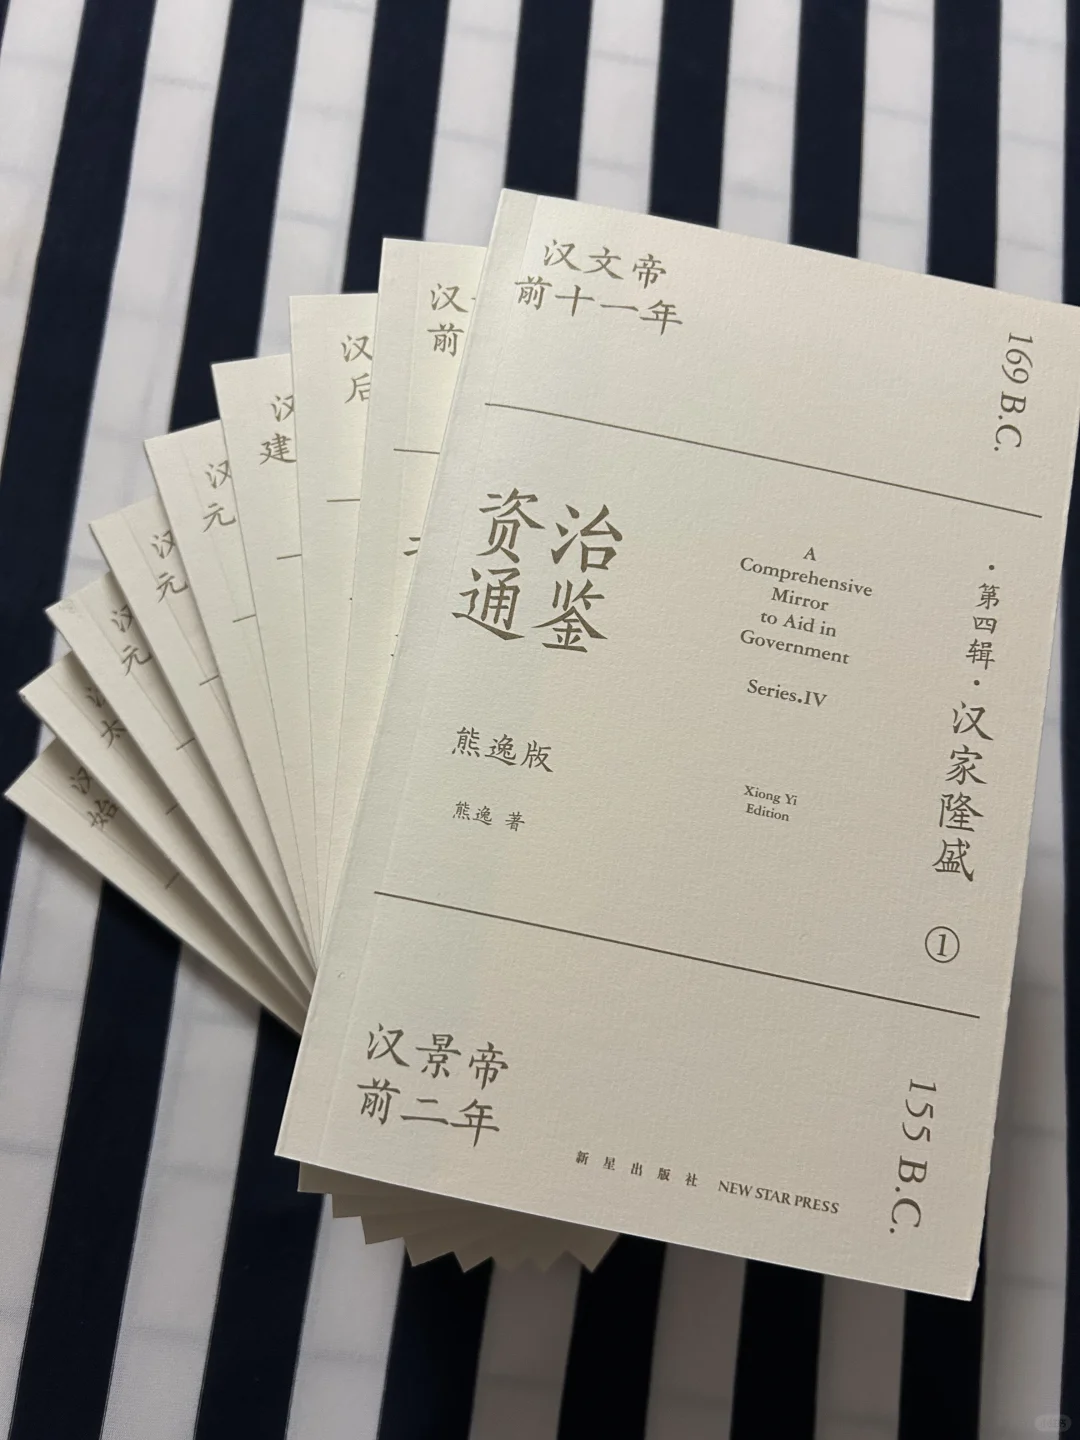 汉文帝
前十一年
169 B.C.
资治
通鉴
A
Comprehensive
Mirror
to Aid in
Government
Series.IV
熊逸版
熊逸 著
Xiong Yi
Edition
·第四辑·汉家隆盛 ①
汉景帝
前二年
155 B.C.
新星出版社 NEW STAR PRESS
汉
前
汉
后
汉
建
汉
元
汉
元
汉
元
汉
太
汉
始